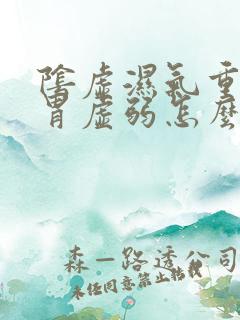 陰虛濕氣重
胃虛弱怎麼
森一路透公司
未经同意禁止转载